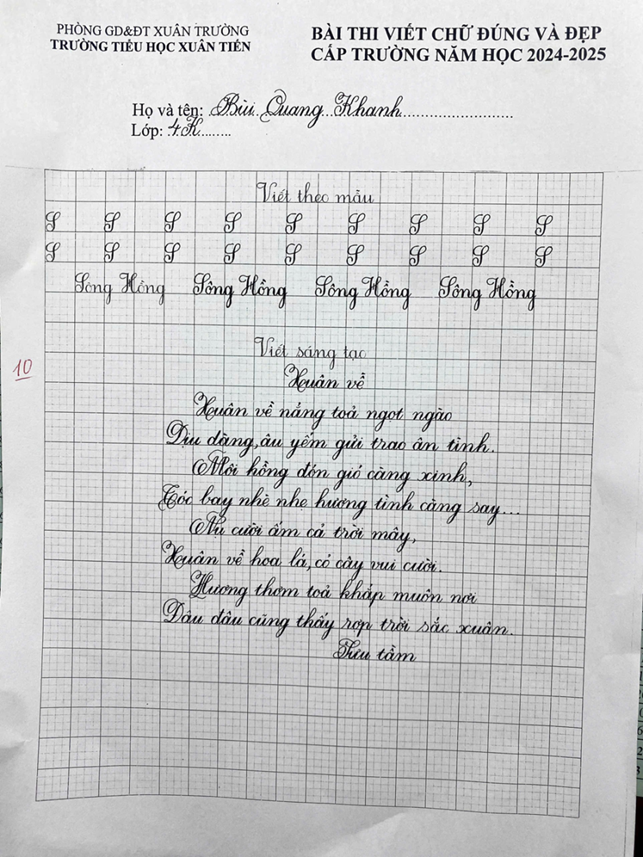 PHÒNG GD&ĐT XUÂN TRƯỜNG
TRƯỜNG TIỂU HỌC XUÂN TIẾN
BÀI THI VIẾT CHỮ ĐÚNG VÀ ĐẸP
CẤP TRƯỜNG NĂM HỌC 2024-2025
Họ và tên: Bùi Quang Khanh
Lớp: 4K
Viết theo mẫu
S S S S S S S S S
S S S S S S S S S
Sông Hồng Sông Hồng Sông Hồng Sông Hồng
10
Viết sáng tạo
Xuân về
Xuân về nắng toả ngọt ngào
Dịu dàng, âu yếm gửi trao ân tình.
Môi hồng đón gió càng xinh,
Tóc bay nhè nhẹ hương tình càng say...
Nụ cười ấm cả trời mây,
Xuân về hoa lá, cỏ cây vui cười.
Hương thơm toả khắp muôn nơi
Đâu đâu cũng thấy rợp trời sắc xuân.
Sưu tầm